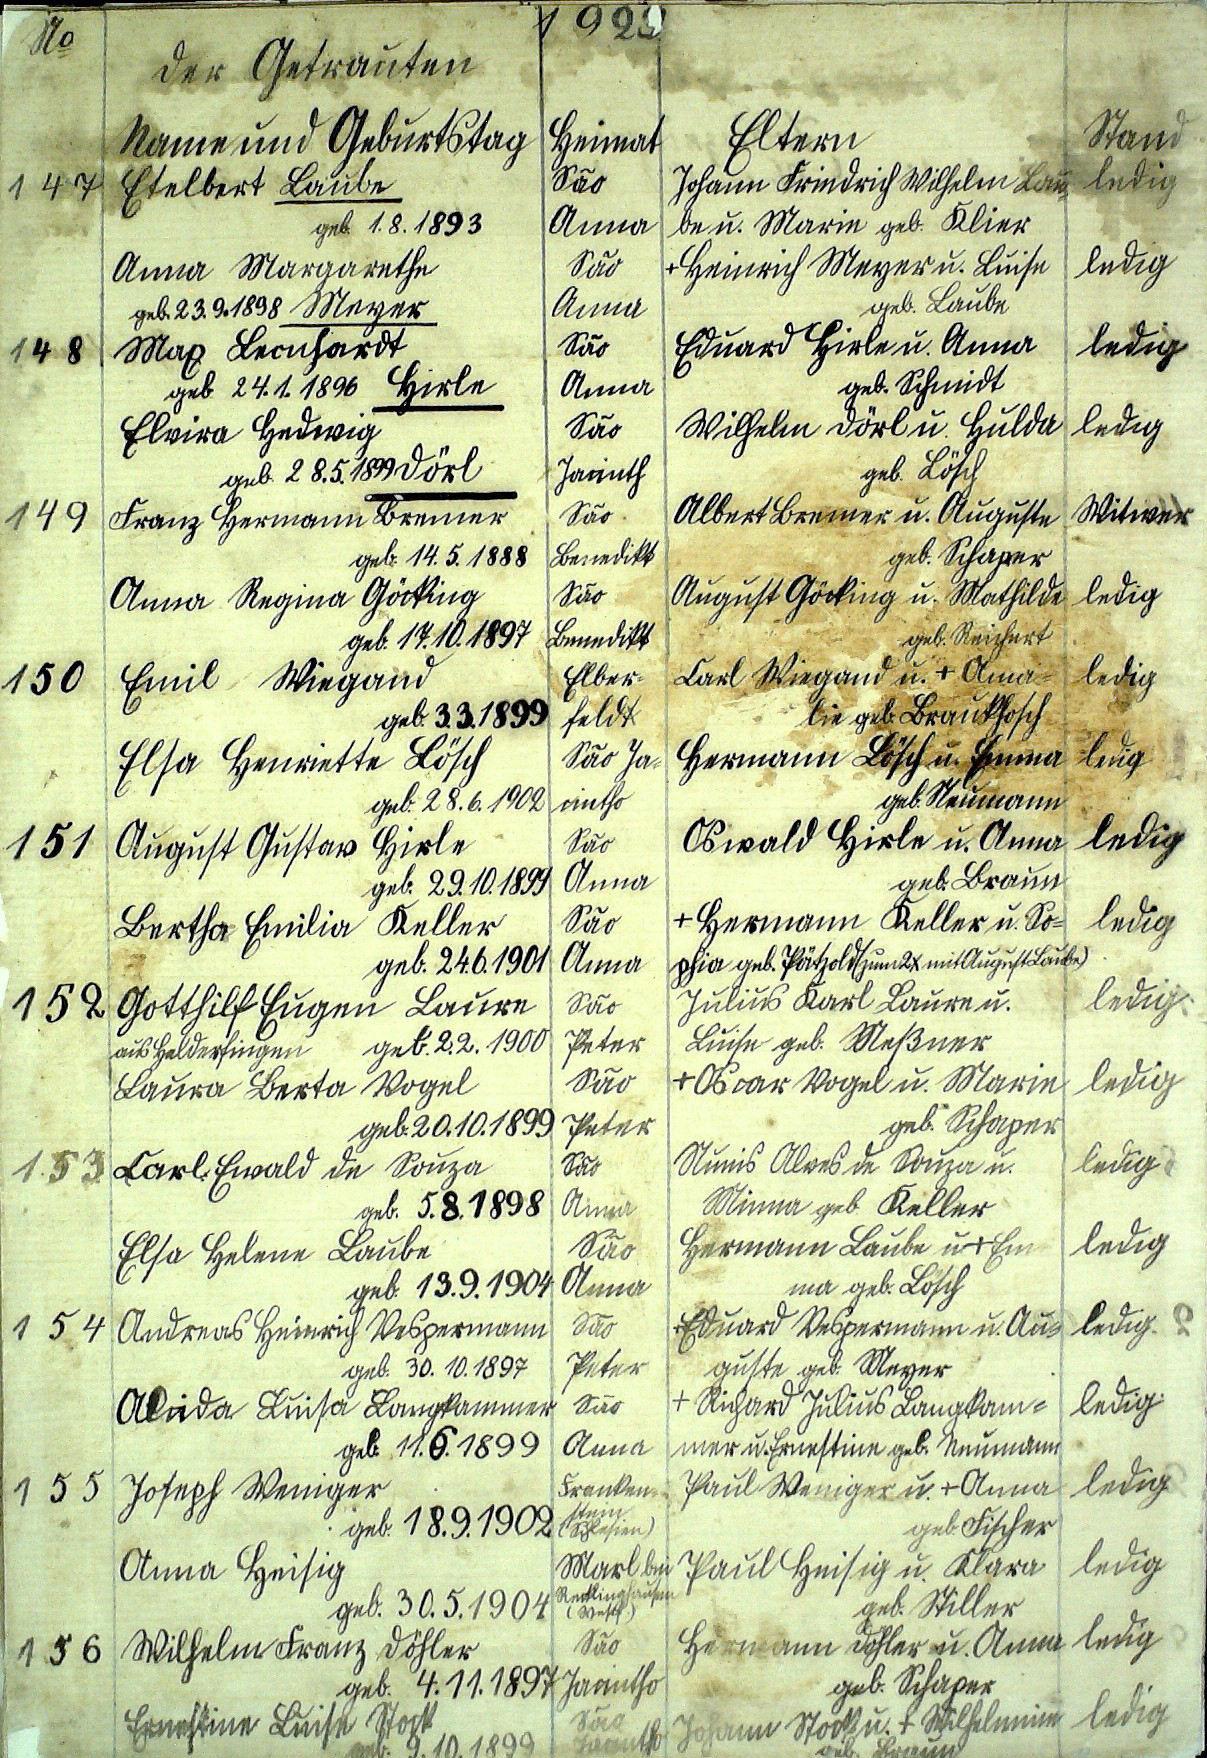 No
192
der Getrauten
Name und Geburtstag Heimat Eltern Stand
147 Etelbert Laube São Johann Friedrich Wilhelm Lau= ledig
geb. 1.8.1893 Anna be u. Marie geb. Klier
Anna Margarethe São +Heinrich Meyer u. Luise ledig
geb. 23.9.1898 Meyer Anna geb. Laube
148 Max Leonhardt São Eduard Hirle u. Anna ledig
geb 24.1.1896 Hirle Anna geb. Schmidt
Elvira Hedwig São Wilhelm Dörl u. Hulda ledig
geb. 28.5.1899 Dörl Jacinth geb. Lösch
149 Franz Hermann Bremer São Albert Bremer u. Auguste Witwer
geb. 14.5.1888 Benedikt geb. Schaper
Anna Regina Göcking São August Göcking u. Mathilde ledig
geb. 17.10.1897 Benedikt geb. Reichert
150 Emil Wiegand Elber= Carl Wiegand u. + Ama= ledig
geb. 3.3.1899 feldt lie geb. Braukhosch
Elsa Henriette Lösch São Ja= Hermann Lösch u. Emma ledig
geb. 28.6.1902 cintho geb. Neumann
151 August Gustav Hirle São Oswald Hirle u. Anna ledig
geb. 29.10.1899 Anna geb. Braun
Bertha Emilia Keller São +Hermann Keller u. So= ledig
geb. 24.6.1901 Anna phia geb. Pätzold (zum 2x mit August Laube)
152 Gotthilf Eugen Laure São Julius Karl Laure u. ledig.
aus Heldersingen geb. 2.2.1900 Peter Luise geb. Meßner
Laura Berta Vogel São +Oscar Vogel u. Marie ledig
geb. 20.10.1899 Peter geb. Schaper
153 Carl Ewald de Souza São Nunis Alves de Souza u. ledig
geb. 5.8.1898 Anna Minna geb Keller
Elsa Helene Laube São Hermann Laube u + Em ledig
geb. 13.9.1904 Anna ma geb. Lösch
154 Andreas Heinrich Vespermann São +Eduard Vespermann u. Au= ledig.
geb. 30.10.1897 Peter guste geb. Meyer
Alida Luisa Langkammer São + Richard Julius Langkam= ledig
geb. 11.6.1899 Anna mer u. Ernestine geb. Neumann
155 Joseph Weniger Franken= Paul Weniger u. + Anna ledig
geb. 18.9.1902 stein (Schlesien) geb. Fischer
Anna Heisig Marl bei Paul Heisig u. Klara ledig
geb. 30.5.1904 Recklinghausen (Westf.) geb. Stiller
156 Wilhelm Franz Döhler São Hermann Döhler u. Anna ledig
geb. 4.11.1897 Jacintho geb. Schaper
Ernestine Luise Stock São Johann Stock u. + Wilhelmine ledig
geb. 9.10.1899 Jacintho geb. Braun